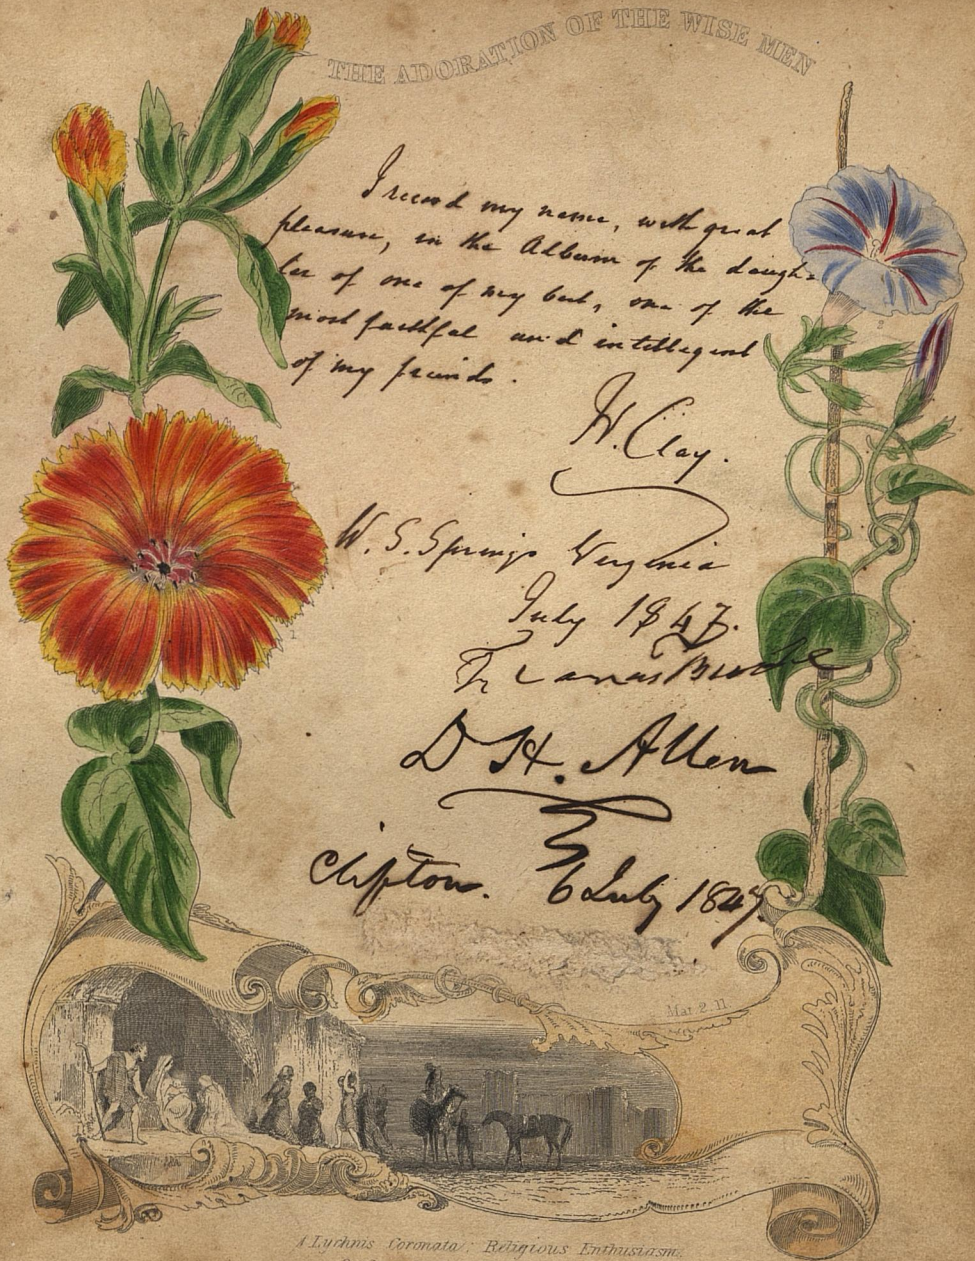 THE ADORATION OF THE WISE MEN
I record my name, with great
pleasure, in the Album of the daugh-
ter of one of my best, one of the
most faithful and intelligent
of my friends.
H. Clay.
W. S. Springs Virginia
July 1847.
D H. Allen
Clifton. 6 July 1847.
Mat 2. 11
A Lychnis Coronata; Religious Enthusiasm.